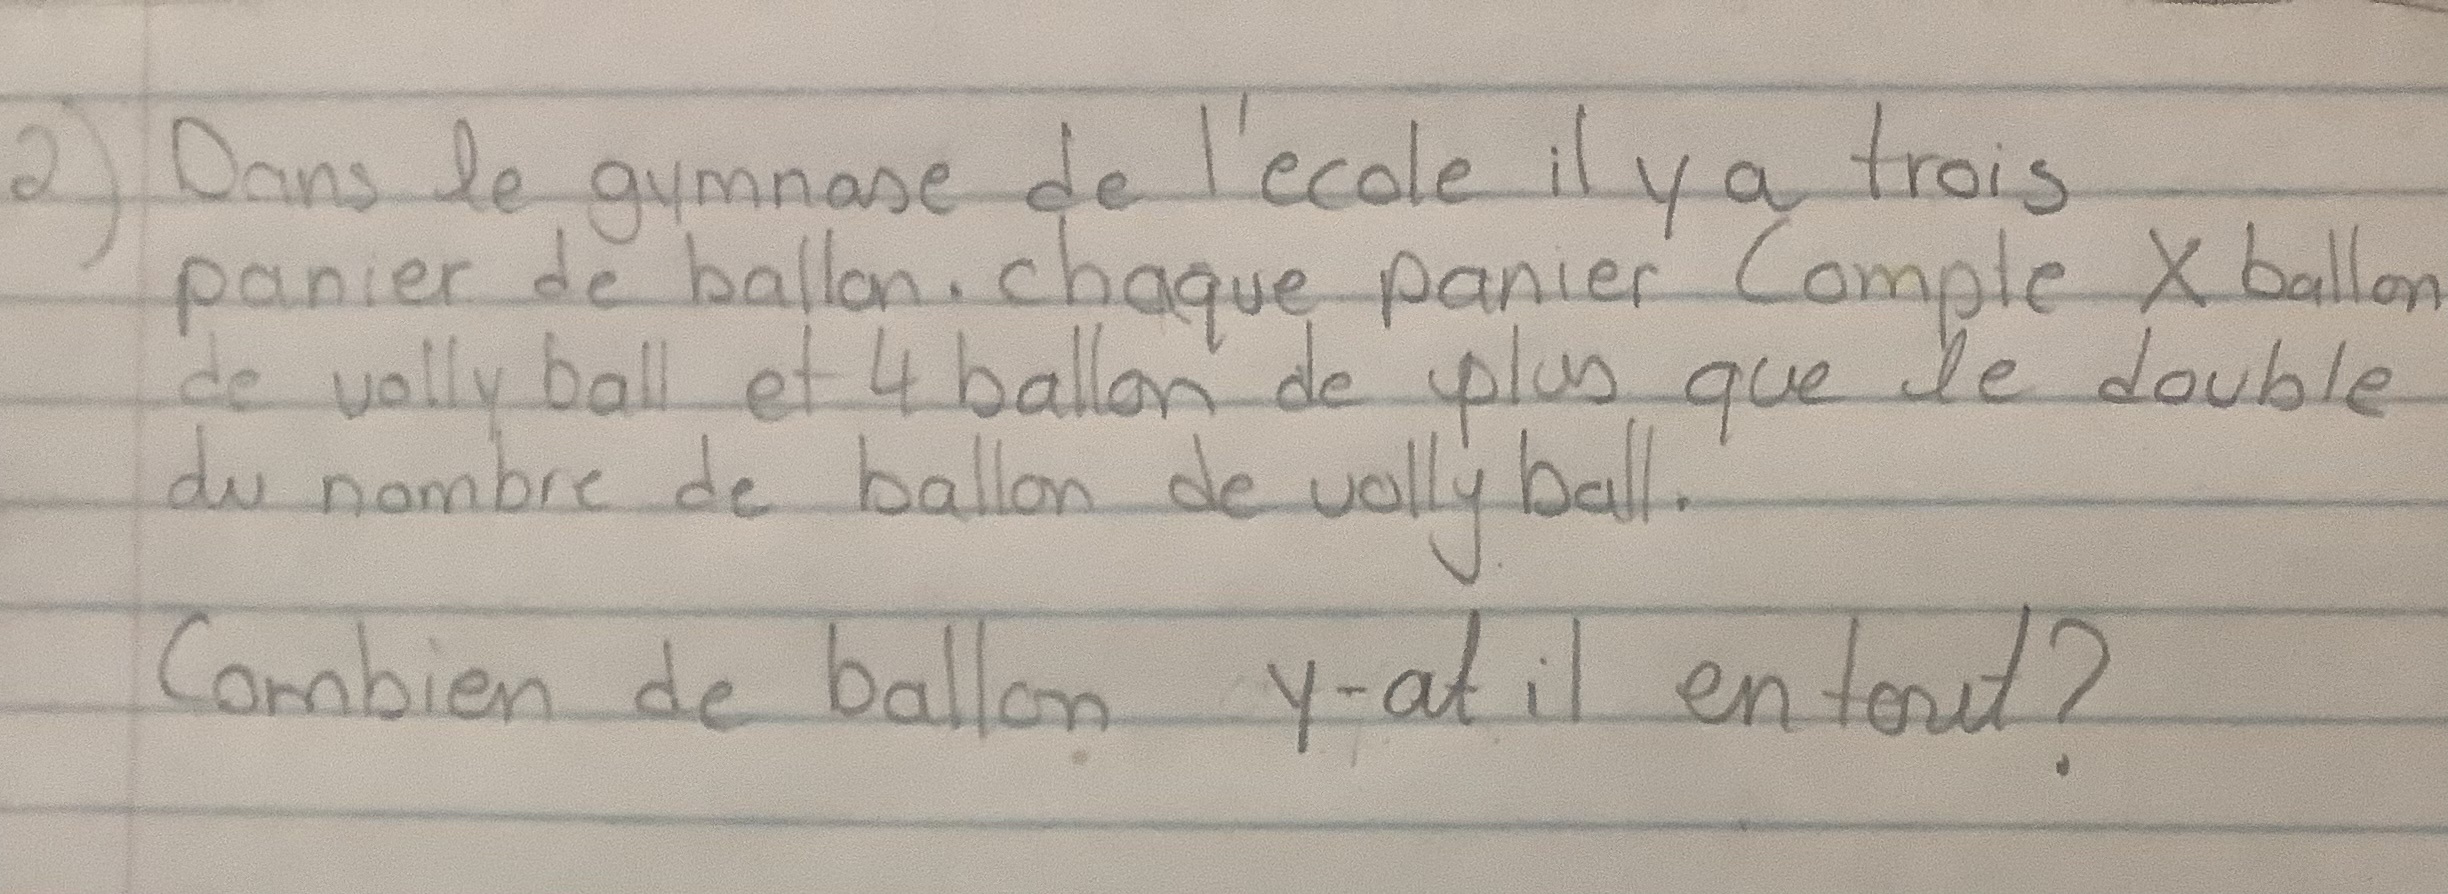 2) Dans le gymnase de l'ecole il y a trois
panier de ballon. chaque panier Comple X ballon
de volly ball et 4 ballon de plus que le double
du nombre de ballon de volly ball.
Combien de ballon y-at il en tout?